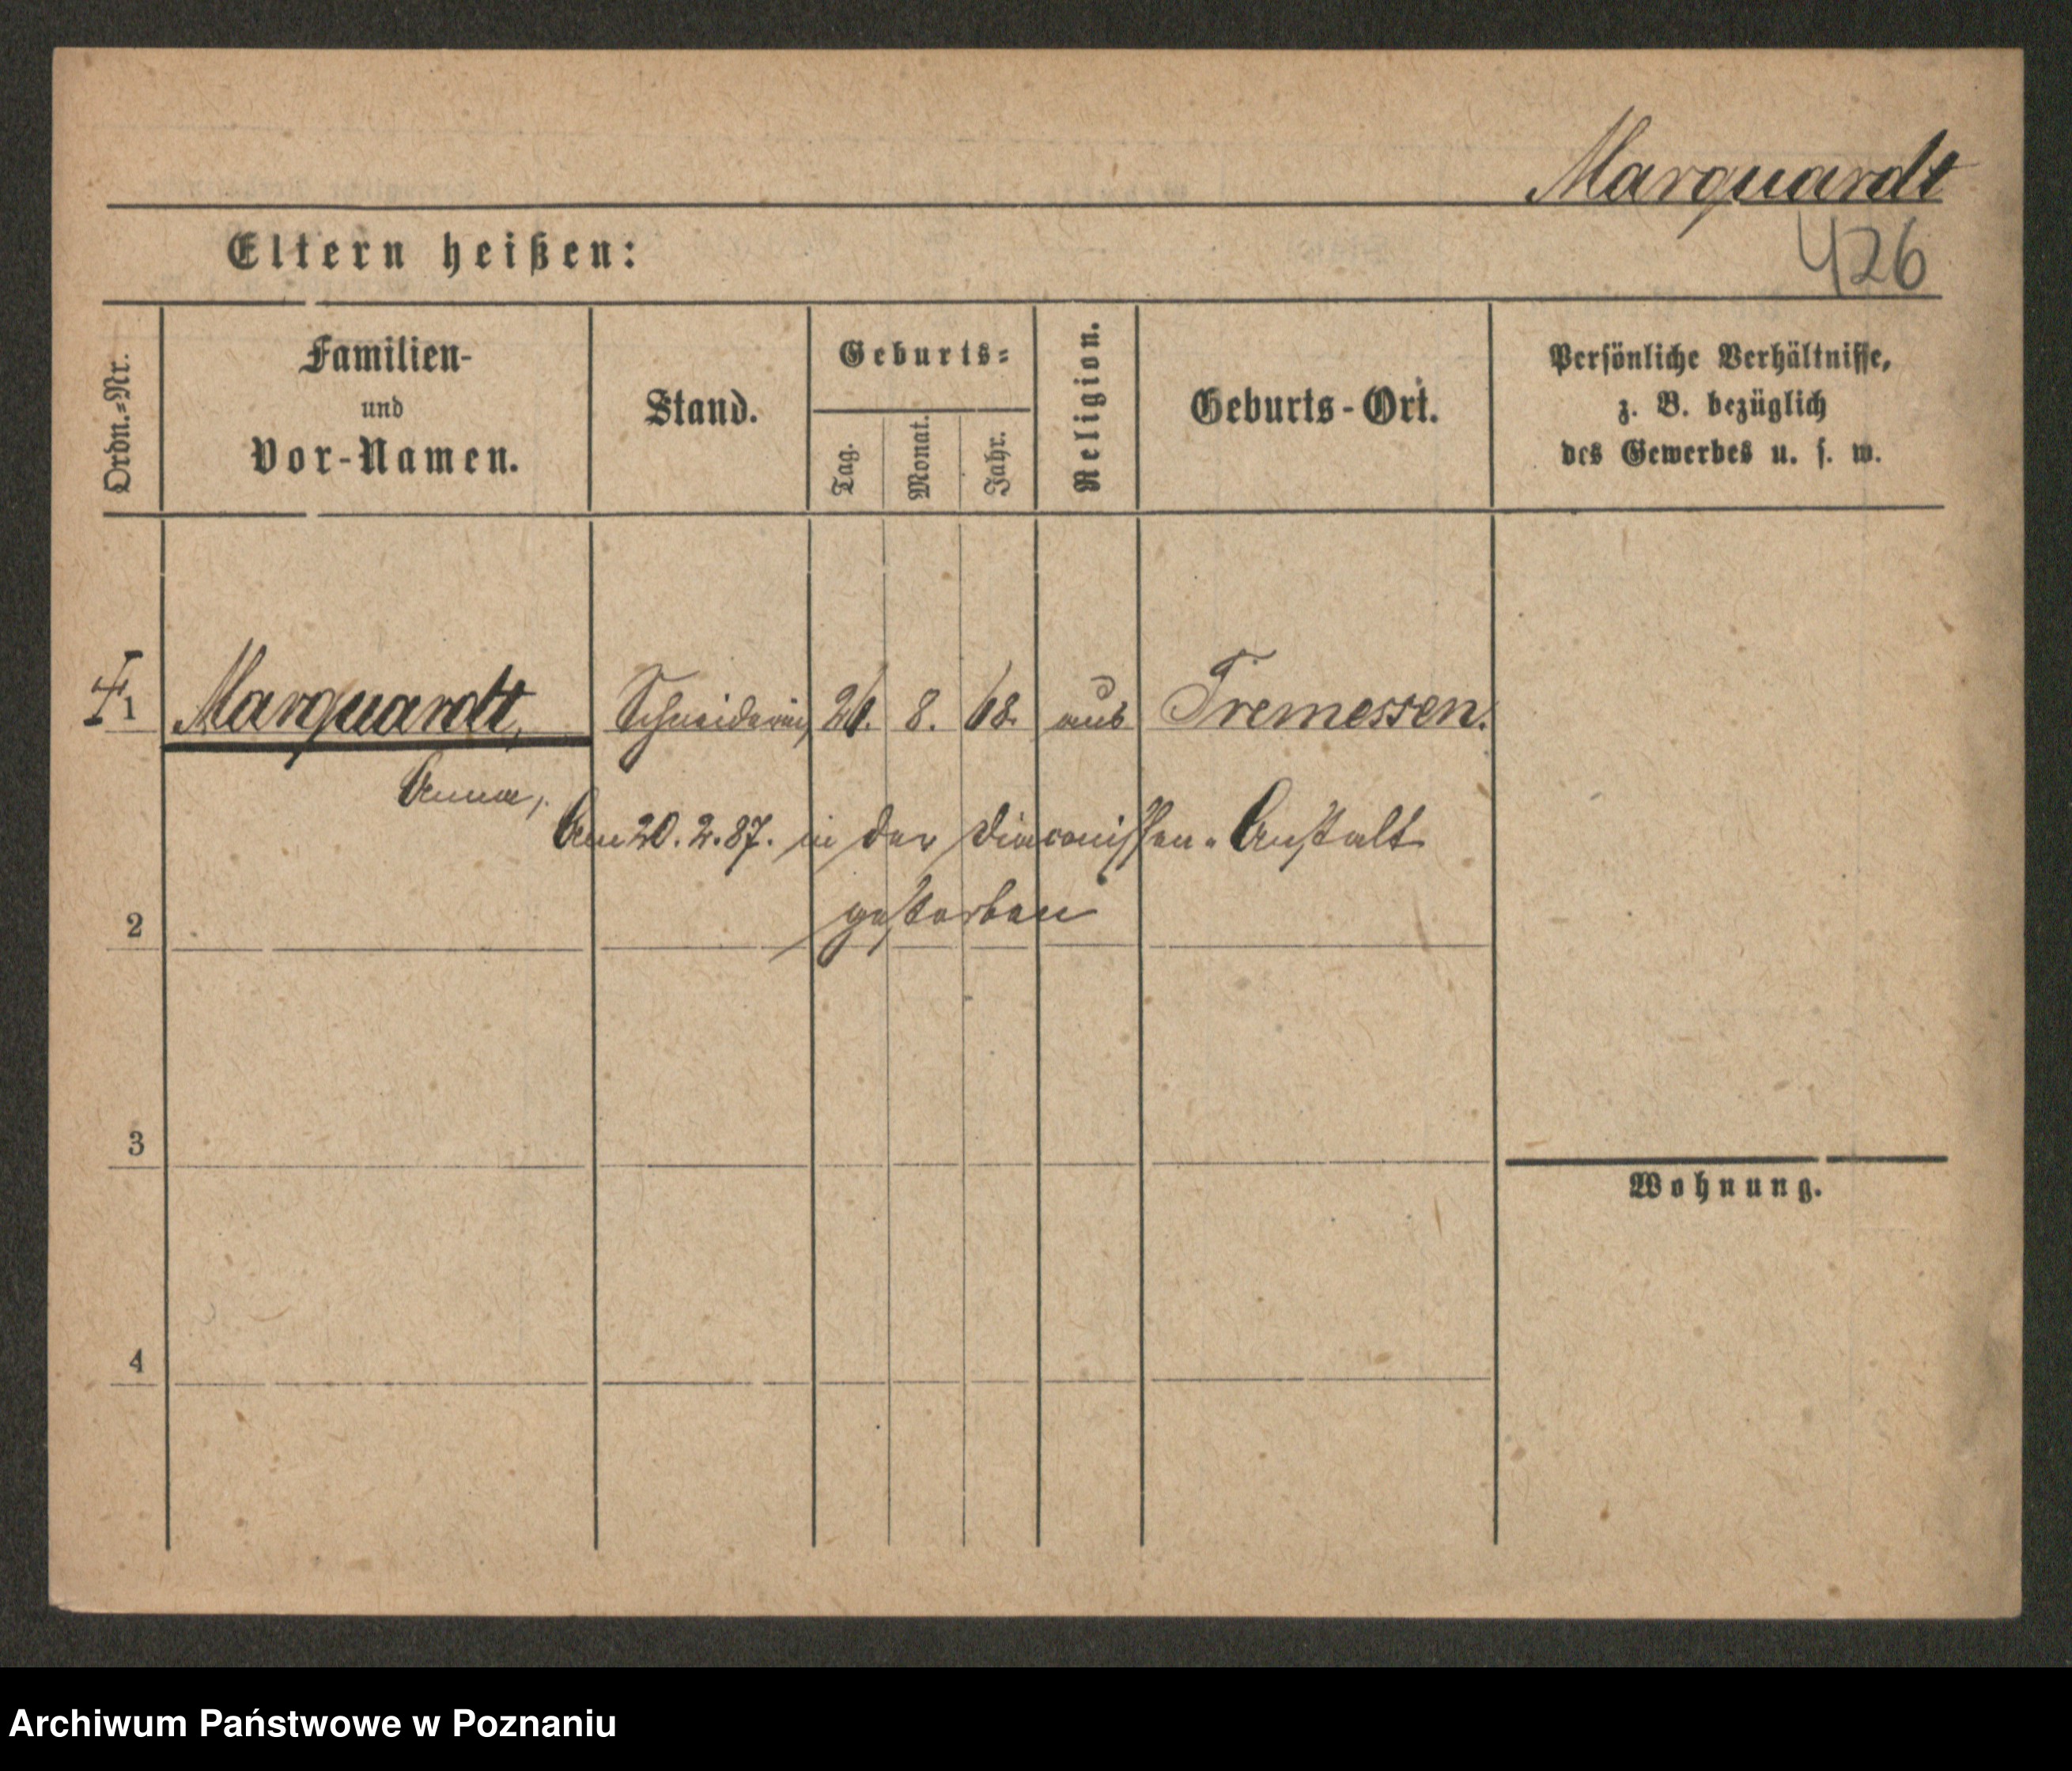 Marquardt
Eltern heißen:
426
Ordn.=Nr.
Familien-
und
Vor-Namen.
Stand.
Geburts=
Tag.
Monat.
Jahr.
Religion.
Geburts-Ort.
Persönliche Verhältnisse,
z. B. bezüglich
des Gewerbes u. s. w.
1 Marquardt, Schneiderin, 8. 68. aus Tremessen.
Anna,
Am 20. 2. 87. in der Diaconissen-Anstalt
gestorben
2
3
Wohnung.
4
Archiwum Państwowe w Poznaniu